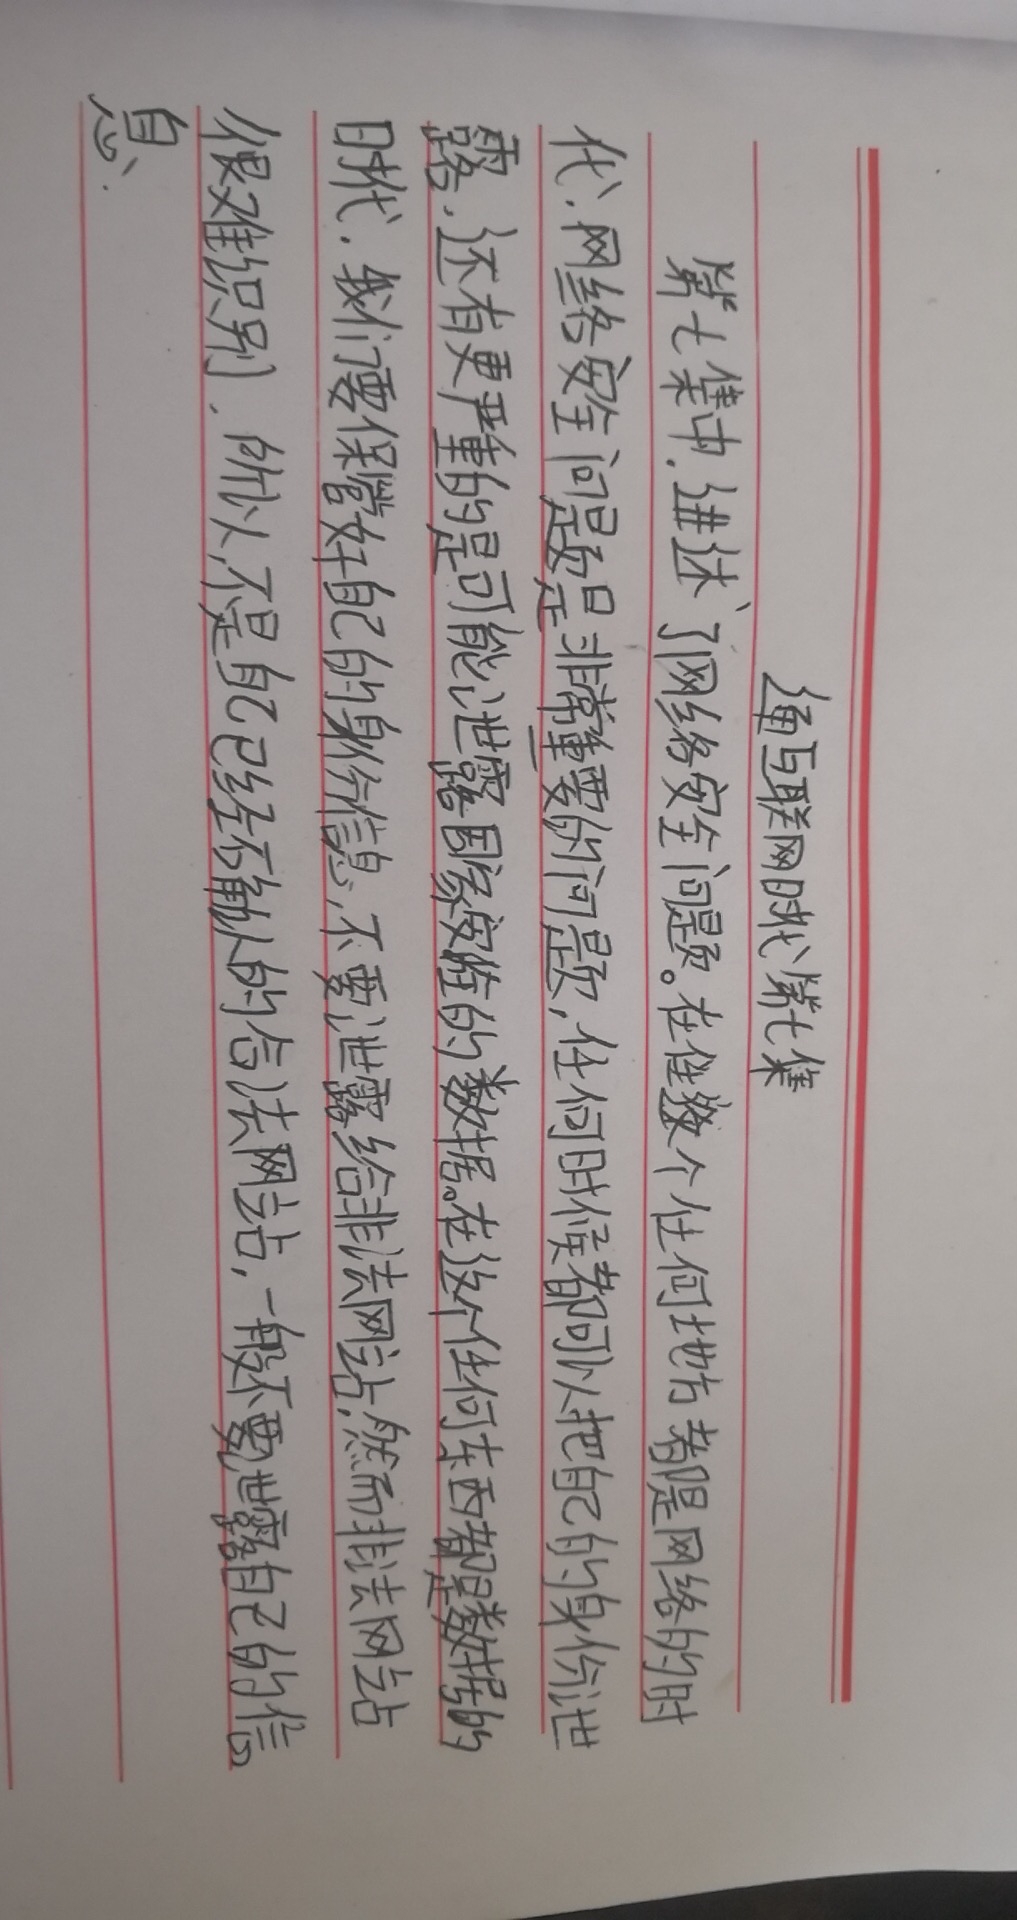 互联网时代第七集
第七集中,进述了网络安全问题。在这个任何地方都是网络的时
代,网络安全问题是非常重要的问题,任何时候都可以把自己的身份泄
露,还有更严重的是可能泄露国家安全的数据。在这个任何东西都是数据的
时代,我们要保管好自己的身份信息,不要泄露给非法网站,然而非法网站
很难识别,所以,不是自己已经确认的合法网站,一般不要泄露自己的信
息、